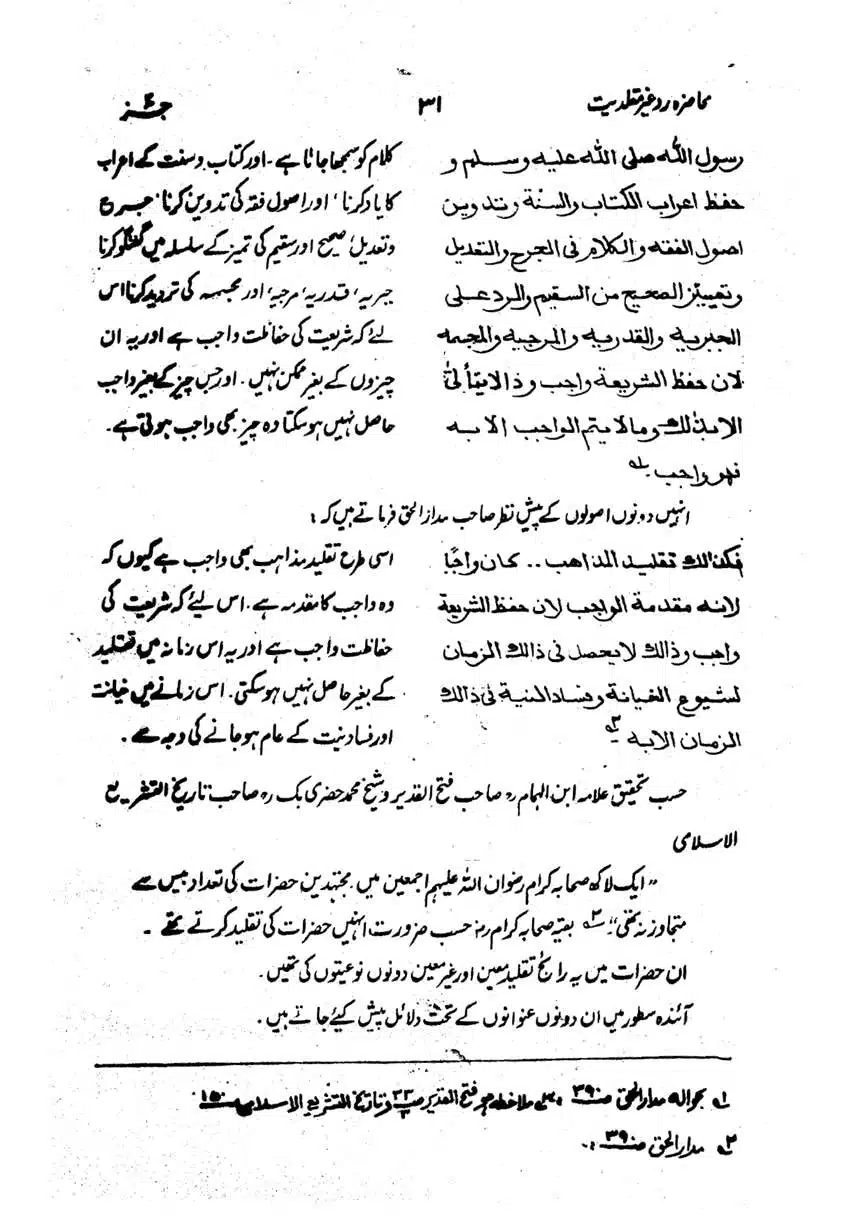 محاضرہ رد غیر مقلدیت ۳۱ جز ۴
رسول اللہ صلی اللہ علیہ وسلم و
حفظ اعراب الکتاب والسنة وتدوین
اصول الفقه والکلام فی الجرح والتعدیل
وتمییز الصحیح من السقیم والرد علی
الجبریه والقدریه والمرجیه والمجسمه
لان حفظ الشریعة واجب وذا لایتأتی
الابذلك ومالایتم الواجب الا به
فهو واجب۔ ۱ے
کلام کو سمجھا جاتا ہے۔ اور کتاب و سنت کے اعراب
کا یاد کرنا، اور اصول فقہ کی تدوین کرنا، جرح
وتعدیل، صحیح اور سقیم کی تمیز کے سلسلہ میں گفتگو کرنا
جبریہ، قدریہ، مرجیہ، اور مجسمہ کی تردید کرنا اس
لئے کہ شریعت کی حفاظت واجب ہے اور یہ ان
چیزوں کے بغیر ممکن نہیں۔ اور جس چیز کے بغیر واجب
حاصل نہیں ہوسکتا وہ چیز بھی واجب ہوتی ہے۔
انہیں دونوں اصولوں کے پیش نظر صاحب مدار الحق فرماتے ہیں کہ:
فکذالك تقلید المذاهب .. کان واجبًا
لانه مقدمة الواجب لان حفظ الشریعة
واجب وذالك لایحصل فی ذالك الزمان
لشیوع الخیانة وفساد النیة فی ذالك
الزمان الابه ۲ے
اسی طرح تقلید مذاہب بھی واجب ہے کیوں کہ
وہ واجب کا مقدمہ ہے۔ اس لیے کہ شریعت کی
حفاظت واجب ہے اور یہ اس زمانہ میں تقلید
کے بغیر حاصل نہیں ہوسکتی۔ اس زمانے میں خیانت
اور فساد نیت کے عام ہو جانے کی وجہ سے۔
حسب تحقیق علامہ ابن الہمام رہ صاحب فتح القدیر و شیخ محمد خضری بک رہ صاحب تاریخ التشریع
الاسلامی
”ایک لاکھ صحابہ کرام رضوان اللہ علیہم اجمعین میں مجتہدین حضرات کی تعداد بیس سے
متجاوز نہ تھی“ ۳ے بقیہ صحابہ کرام رض حسب ضرورت انہیں حضرات کی تقلید کرتے تھے۔
ان حضرات میں یہ رائج تقلید معین اور غیر معین دونوں نوعیتوں کی تھیں۔
آئندہ سطور میں ان دونوں عنوانوں کے تحت دلائل پیش کیئے جاتے ہیں۔
۱ے بحوالہ مدار الحق ص۳۹۰ ملاحظہ ہو فتح القدیر و تاریخ التشریع الاسلامی
۲ے مدار الحق ص۳۹۰